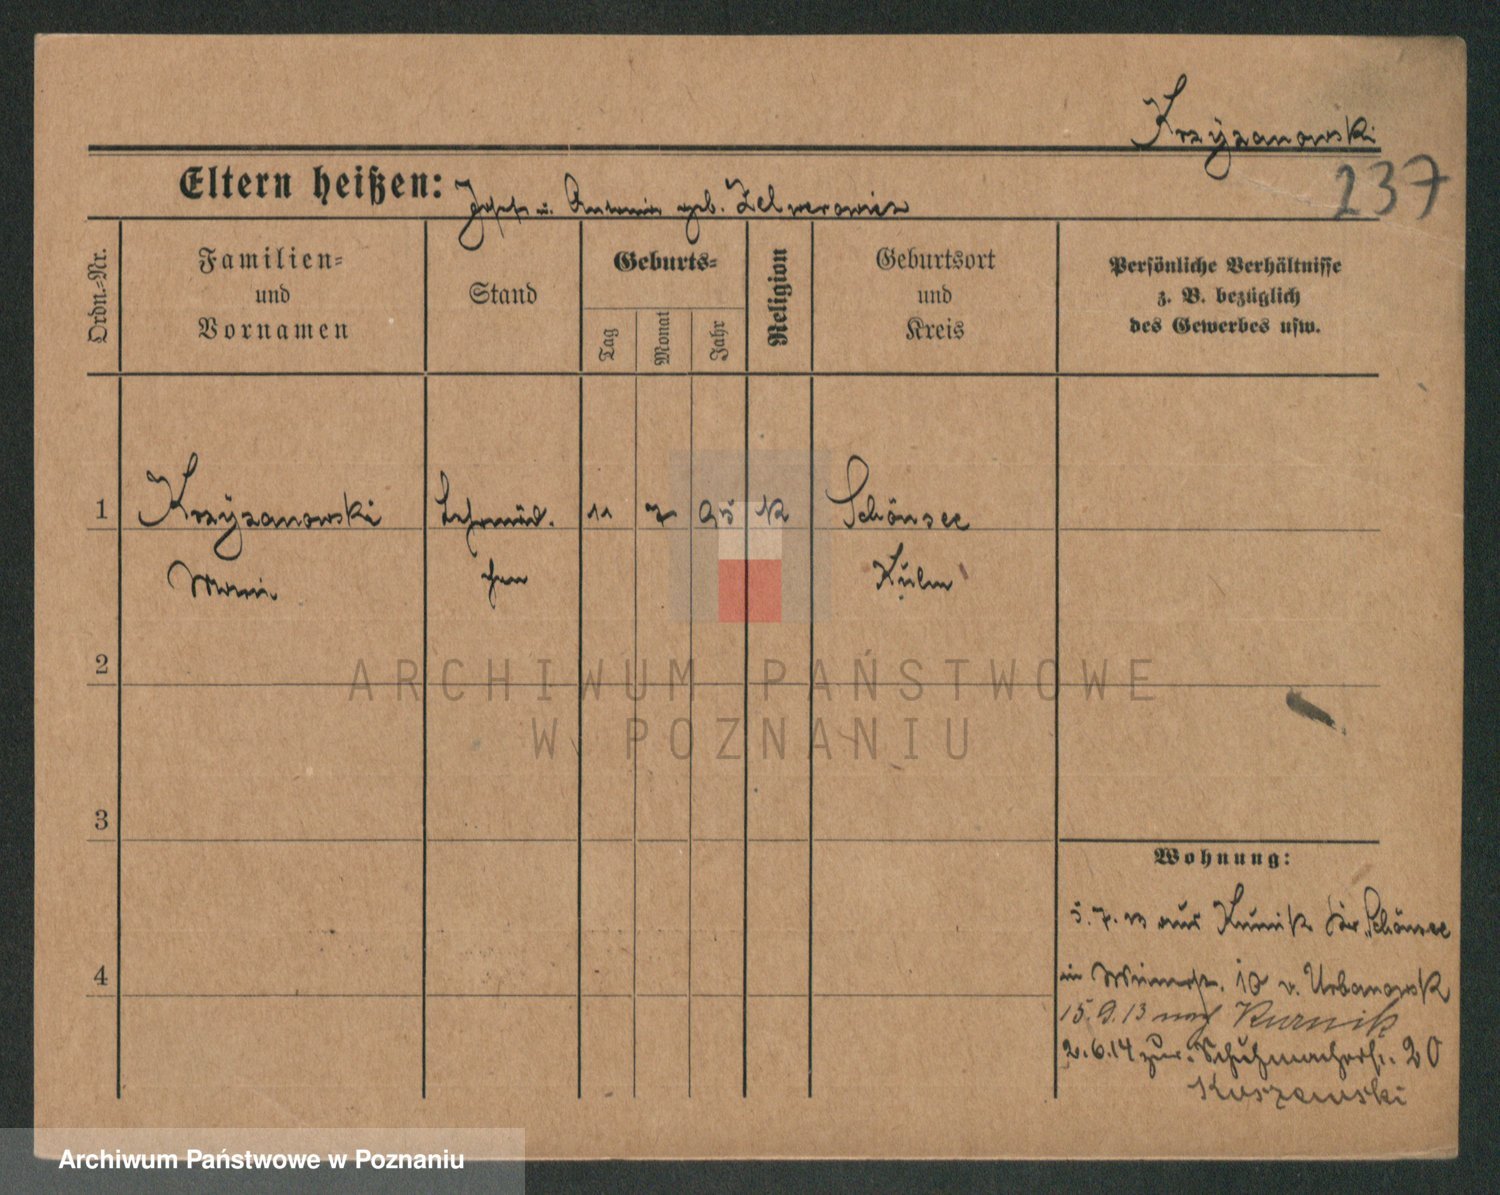 Krzyzanowski
237
Eltern heißen: Josef u. Antonie geb. Zelwerowicz
Ordn.-Nr.
Familien-
und
Vornamen
Stand
Geburts-
Tag
Monat
Jahr
Religion
Geburtsort
und
Kreis
Persönliche Verhältnisse
z. B. bezüglich
des Gewerbes usw.
1 Krzÿzanowski Lehrmäd. 11 7 95 K Schönsee
chen Kulm
2
ARCHIWUM PAŃSTWOWE
W POZNANIU
3
Wohnung:
5.7. aus Schönsee
4
in v. Urbanowsk
15.9.13 nach Kurnik
2.6.14 zur. Schuhmacherstr. 20
Archiwum Państwowe w Poznaniu